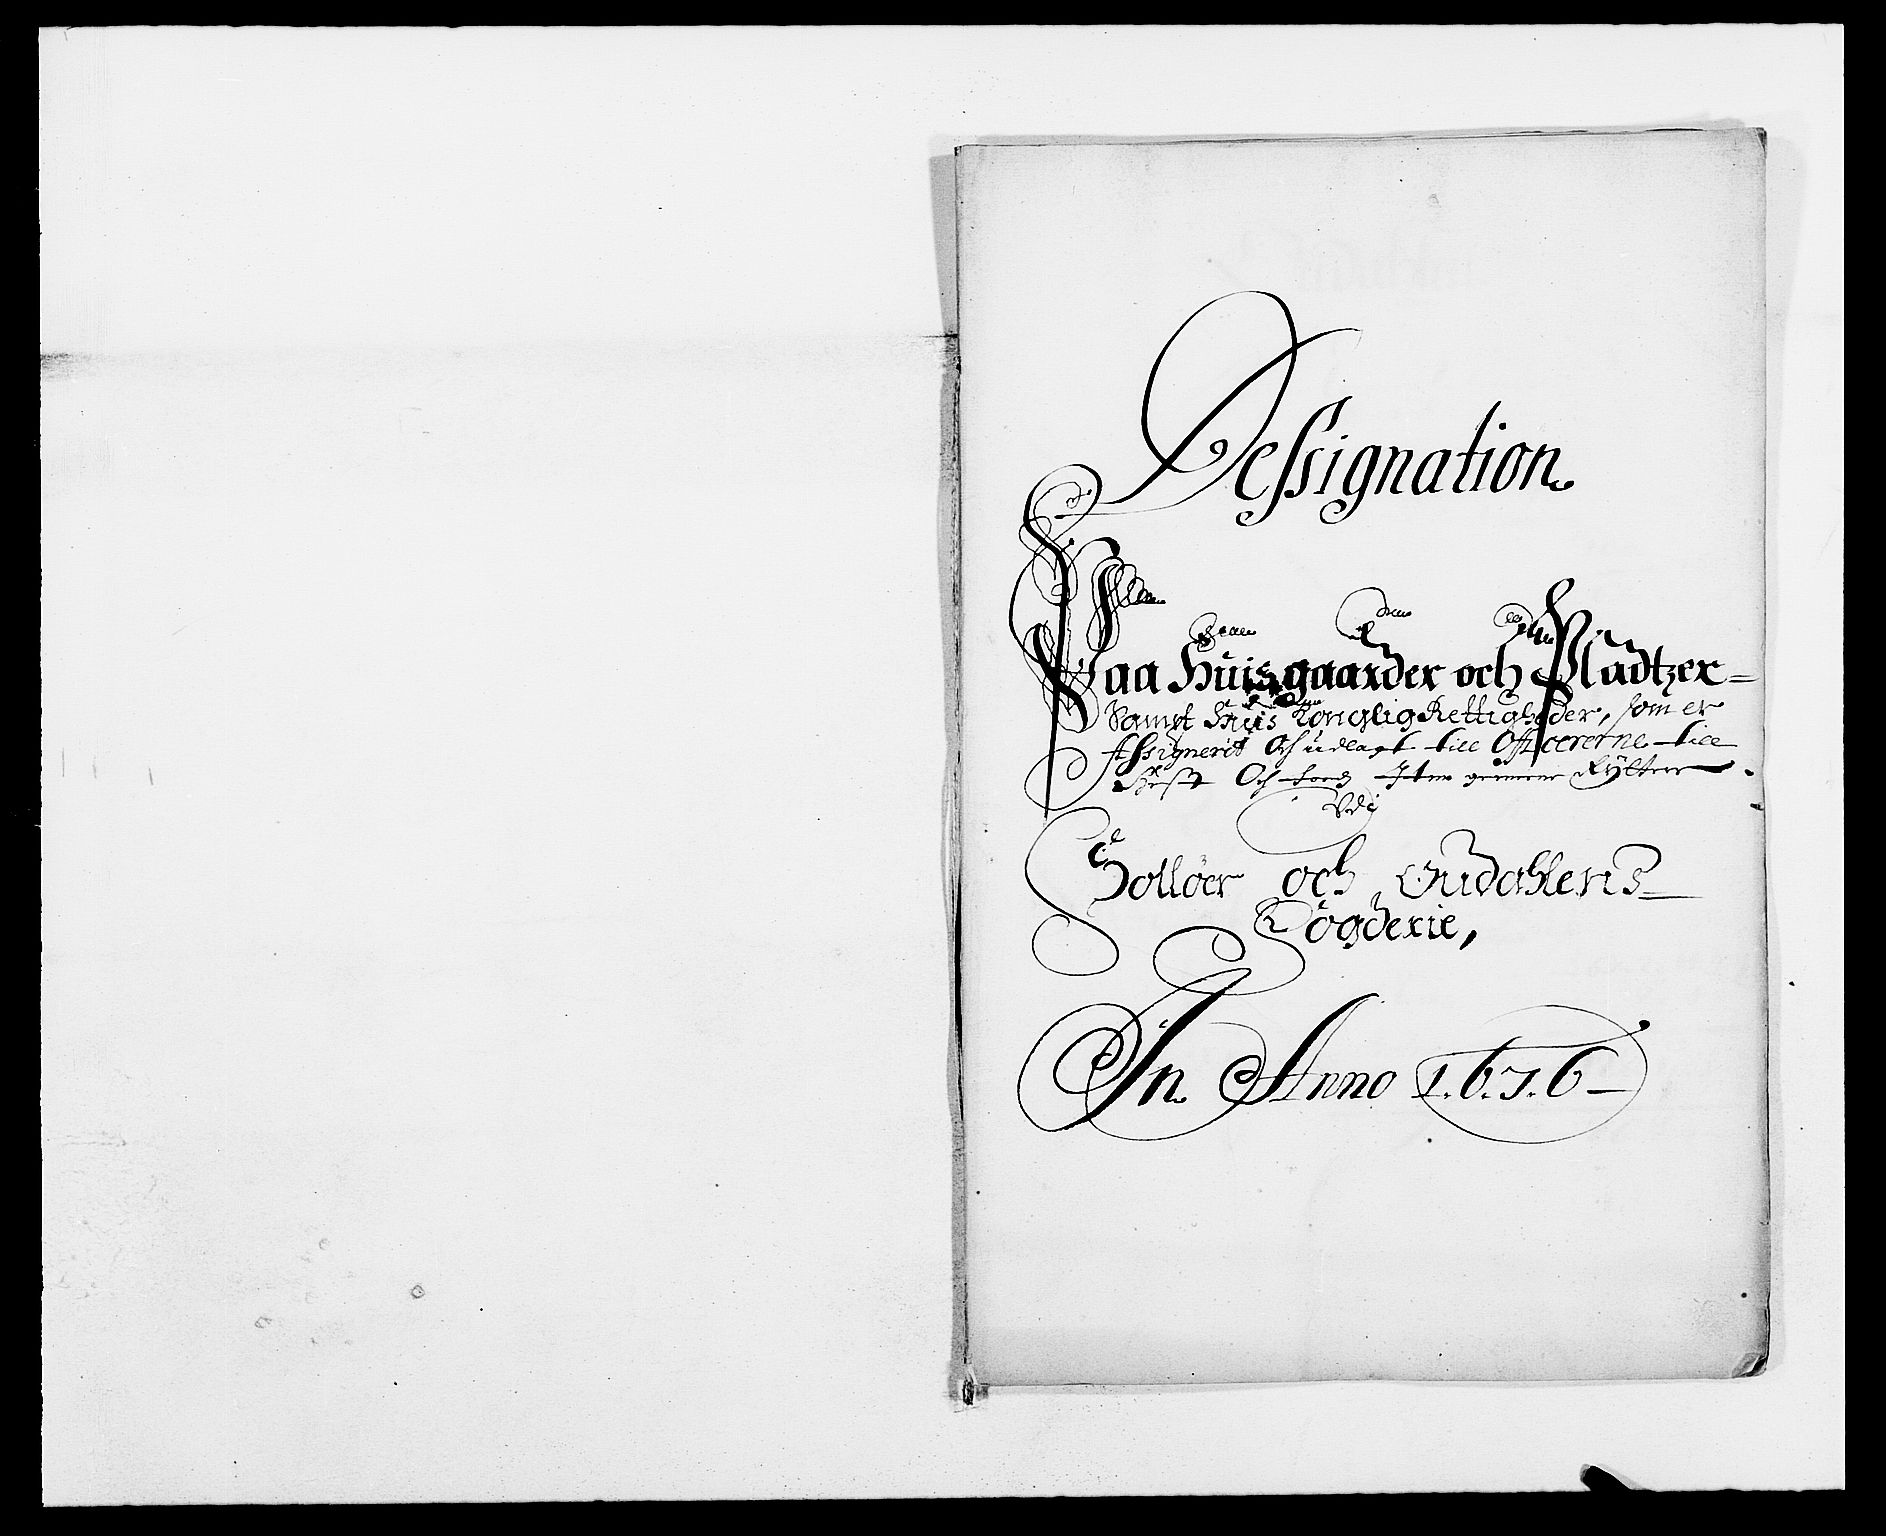 Dessignation
Paa Huisgaarder och Pladtzer
Sampt Huis Konglig Rettigheder, som er
Assignerit Och udlagt till Officererne till
Hest Och fods Item gemeene Ryttere
Udj
Solløer och Øudahlens
Fogderie,
In Anno 1.6.7.6